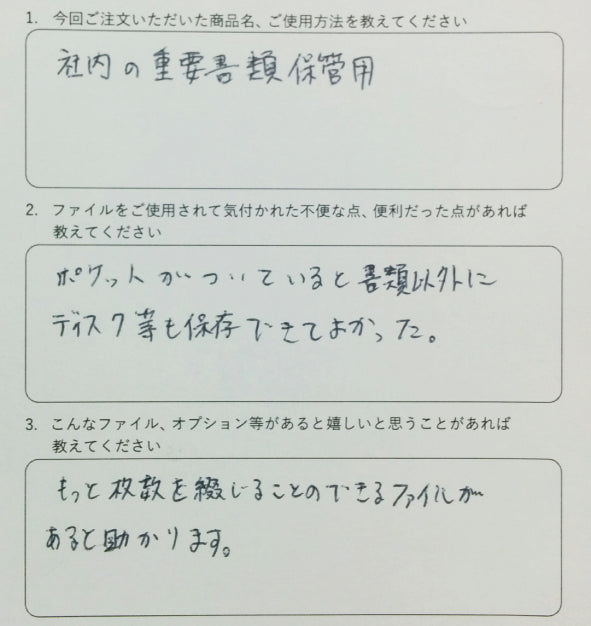 1. 今回ご注文いただいた商品名、ご使用方法を教えてください
社内の重要書類保管用
2. ファイルをご使用されて気付かれた不便な点、便利だった点があれば
教えてください
ポケットがついていると書類以外に
ディスク等も保存できてよかった。
3. こんなファイル、オプション等があると嬉しいと思うことがあれば
教えてください
もっと枚数を綴じることのできるファイルが
あると助かります。